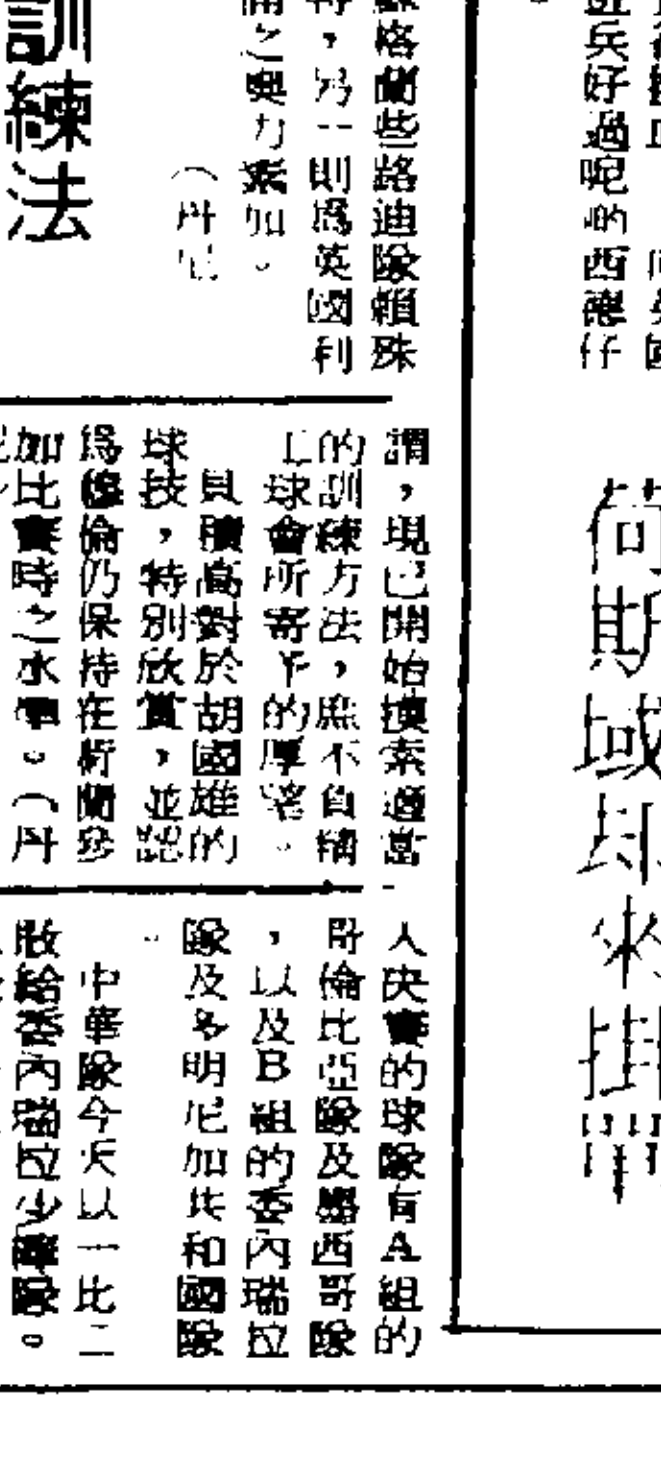 兵好過呢啲西德仔
何斯域球來掛單
蘇格蘭些路迪隊賴殊
，另一則為英國利
之奧力素如。
（丹尼
訓練法
謂，現已開始摸索適當
的訓練方法，庶不負精
工球會所寄予的厚望。
貝積高對於胡國雄的
球技，特別欣賞，並認
為穆倫仍保持在蘭參
加比賽時之水準。（丹
人決賽的球隊有A組的
哥倫比亞隊及墨西哥隊
，以及B組的委內瑞拉
隊及多明尼加共和國隊
。
中華隊今天以一比二
敗給委內瑞拉少棒隊。